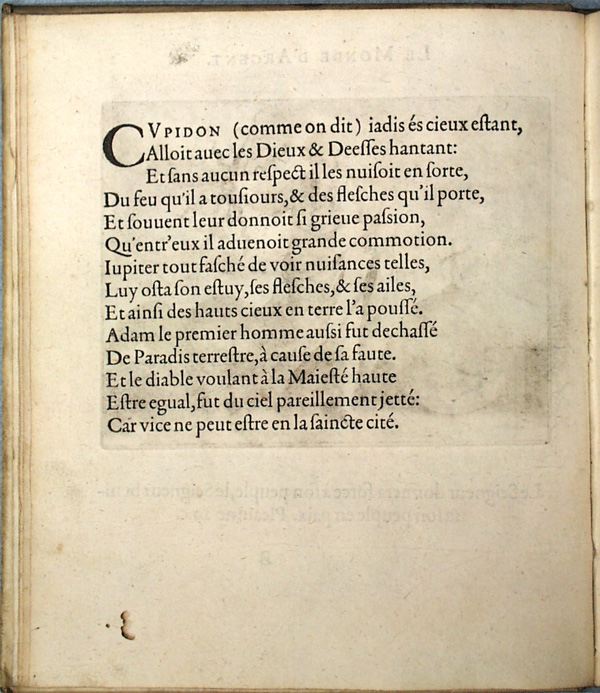 CVPIDON (comme on dit) iadis és cieux eſtant,
Alloit auec les Dieux & Deeſſes hantant:
Et ſans aucun reſpect il les nuiſoit en ſorte,
Du feu qu'il a touſiours, & des fleſches qu'il porte,
Et ſouuent leur donnoit ſi grieue paſsion,
Qu'entr'eux il aduenoit grande commotion.
Iupiter tout faſché de voir nuiſances telles,
Luy oſta ſon eſtuy, ſes fleſches, & ſes ailes,
Et ainſi des hauts cieux en terre l'a pouſſé.
Adam le premier homme auſsi fut dechaſſé
De Paradis terreſtre, à cauſe de ſa faute.
Et le diable voulant à la Maieſté haute
Eſtre egual, fut du ciel pareillement jetté:
Car vice ne peut eſtre en la ſaincte cité.